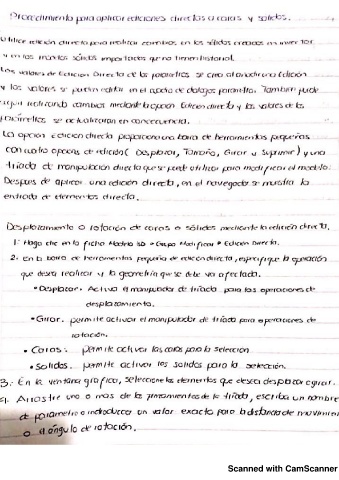 Procedimiento para aplicar ediciones directas a caras y solidos.
Utilice edición directa para realizar cambios en los sólidos creados en inventor
y en los sólidos importados que no tienen historial.
Los valores de Edicion Directa de los parametros se crea al añadir una Edición
y los valores se pueden editar en el cuadro de dialogo parametros. Tambien puede
seguir realizando cambios mediante la opción Edición directa y los valores de los
parámetros se actualizaran en consecuencia.
La opción Edición directa proporciona una barra de herramientas pequeñas
con cuatro opciones de edición (Desplazar, Tamaño, Girar y Suprimir) y una
triada de manipulación directa que se puede utilizar para modificar el modelo.
Despues de aplicar una edición directa, en el navegador se muestra la
entrada de elementos directa.
Desplazamiento o rotación de caras o sólidos mediante la edición directa.
1. Haga clic en la ficha Modelo 3D → Grupo Modificar → Edición Directa.
2. En la barra de herramientas pequeña de edición directa, especifique la operación
que desea realizar y la geometría que se debe va afectada.
• Desplazar. Activa el manipulador de triada para las operaciones de
desplazamiento.
• Girar. permite activar el manipulador de triada para operaciones de
rotación.
• Caras: permite activar las caras para la seleccion
• Solidos. permite activar los solidos para la selección.
3. En la ventana grafica, seleccione los elementos que desea desplazar o girar.
4. Arrastre uno o mas de los pinzamientos de la triada, escriba un nombre
de parametro o introduzca un valor exacto para la distancia de movimien
o el ángulo de rotación.
Scanned with CamScanner